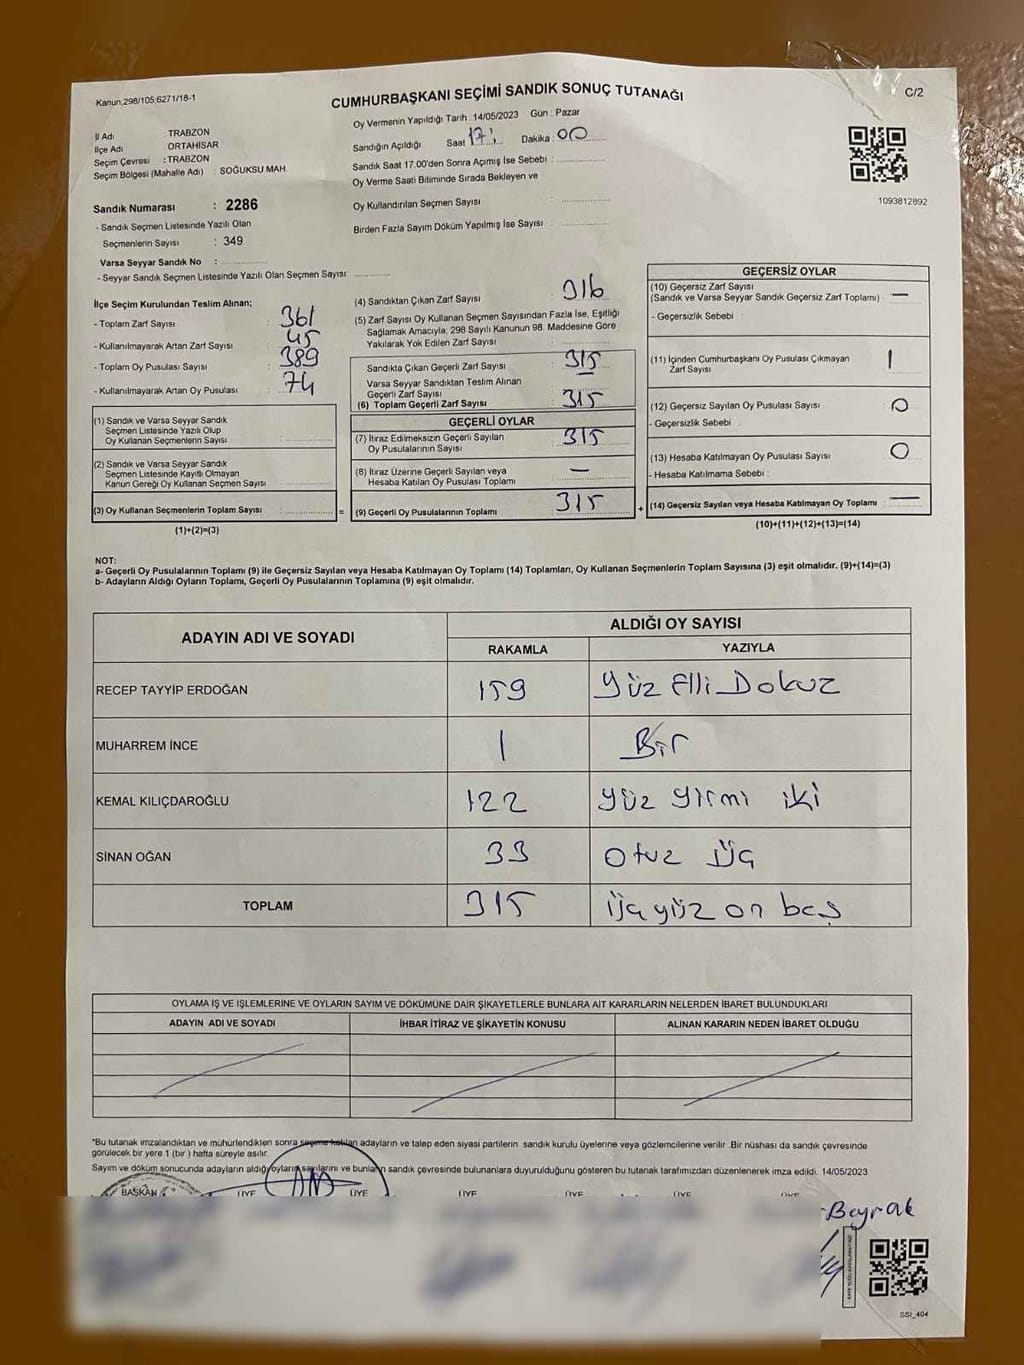 Kanun,298/105,6271/18-1
CUMHURBAŞKANI SEÇİMİ SANDIK SONUÇ TUTANAĞI
C/2
İl Adı : TRABZON
İlçe Adı : ORTAHİSAR
Seçim Çevresi : TRABZON
Seçim Bölgesi (Mahalle Adı) : SOĞUKSU MAH.
Oy Vermenin Yapıldığı Tarih : 14/05/2023 Gün : Pazar
Sandığın Açıldığı Saat : 17: Dakika : 00
Sandık Saat 17.00'den Sonra Açmış İse Sebebi :
Oy Verme Saati Bitiminde Sırada Bekleyen ve
Oy Kullandırılan Seçmen Sayısı :
Birden Fazla Sayım Döküm Yapılmış İse Sayısı :
1093812892
Sandık Numarası : 2286
- Sandık Seçmen Listesinde Yazılı Olan
Seçmenlerin Sayısı : 349
Varsa Seyyar Sandık No :
- Seyyar Sandık Seçmen Listesinde Yazılı Olan Seçmen Sayısı:
İlçe Seçim Kurulundan Teslim Alınan;
- Toplam Zarf Sayısı : 361
- Kullanılmayarak Artan Zarf Sayısı : 45
- Toplam Oy Pusulası Sayısı : 389
- Kullanılmayarak Artan Oy Pusulası : 74
(1) Sandık ve Varsa Seyyar Sandık
Seçmen Listesinde Yazılı Olup
Oy Kullanan Seçmenlerin Sayısı :
(2) Sandık ve Varsa Seyyar Sandık
Seçmen Listesinde Kayıtlı Olmayan
Kanun Gereği Oy Kullanan Seçmen Sayısı :
(3) Oy Kullanan Seçmenlerin Toplam Sayısı : =
(1)+(2)=(3)
(4) Sandıktan Çıkan Zarf Sayısı : 316
(5) Zarf Sayısı Oy Kullanan Seçmen Sayısından Fazla İse, Eşitliği
Sağlamak Amacıyla; 298 Sayılı Kanunun 98. Maddesine Göre
Yakılarak Yok Edilen Zarf Sayısı :
Sandıkta Çıkan Geçerli Zarf Sayısı : 315
Varsa Seyyar Sandıktan Teslim Alınan
Geçerli Zarf Sayısı :
(6) Toplam Geçerli Zarf Sayısı : 315
GEÇERLİ OYLAR
(7) İtiraz Edilmeksizin Geçerli Sayılan : 315
Oy Pusulalarının Sayısı
(8) İtiraz Üzerine Geçerli Sayılan veya : —
Hesaba Katılan Oy Pusulası Toplamı
(9) Geçerli Oy Pusulalarının Toplamı : 315 +
GEÇERSİZ OYLAR
(10) Geçersiz Zarf Sayısı
(Sandık ve Varsa Seyyar Sandık Geçersiz Zarf Toplamı) : —
- Geçersizlik Sebebi :
(11) İçinden Cumhurbaşkanı Oy Pusulası Çıkmayan : 1
Zarf Sayısı
(12) Geçersiz Sayılan Oy Pusulası Sayısı : 0
- Geçersizlik Sebebi :
(13) Hesaba Katılmayan Oy Pusulası Sayısı : 0
- Hesaba Katılmama Sebebi :
(14) Geçersiz Sayılan veya Hesaba Katılmayan Oy Toplamı : —
(10)+(11)+(12)+(13)=(14)
NOT:
a- Geçerli Oy Pusulalarının Toplamı (9) ile Geçersiz Sayılan veya Hesaba Katılmayan Oy Toplamı (14) Toplamları, Oy Kullanan Seçmenlerin Toplam Sayısına (3) eşit olmalıdır. (9)+(14)=(3)
b- Adayların Aldığı Oyların Toplamı, Geçerli Oy Pusulalarının Toplamına (9) eşit olmalıdır.
ADAYIN ADI VE SOYADI
ALDIĞI OY SAYISI
RAKAMLA YAZIYLA
RECEP TAYYİP ERDOĞAN 159 Yüz Elli Dokuz
MUHARREM İNCE 1 Bir
KEMAL KILIÇDAROĞLU 122 Yüz Yirmi iki
SİNAN OĞAN 33 Otuz Üç
TOPLAM 315 Üçyüz on beş
OYLAMA İŞ VE İŞLEMLERİNE VE OYLARIN SAYIM VE DÖKÜMÜNE DAİR ŞİKAYETLERLE BUNLARA AİT KARARLARIN NELERDEN İBARET BULUNDUKLARI
ADAYIN ADI VE SOYADI İHBAR İTİRAZ VE ŞİKAYETİN KONUSU ALINAN KARARIN NEDEN İBARET OLDUĞU
*Bu tutanak imzalandıktan ve mühürlendikten sonra seçime katılan adayların ve talep eden siyasi partilerin sandık kurulu üyelerine veya gözlemcilerine verilir. Bir nüshası da sandık çevresinde
görülecek bir yere 1 (bir) hafta süreyle asılır.
Sayım ve döküm sonucunda adayların aldığı oyların sayılarını ve bunların sandık çevresinde bulunanlara duyurulduğunu gösteren bu tutanak tarafımızdan düzenlenerek imza edildi. 14/05/2023
BAŞKAN ÜYE ÜYE ÜYE ÜYE ÜYE ÜYE
Bayrak
SSI_404